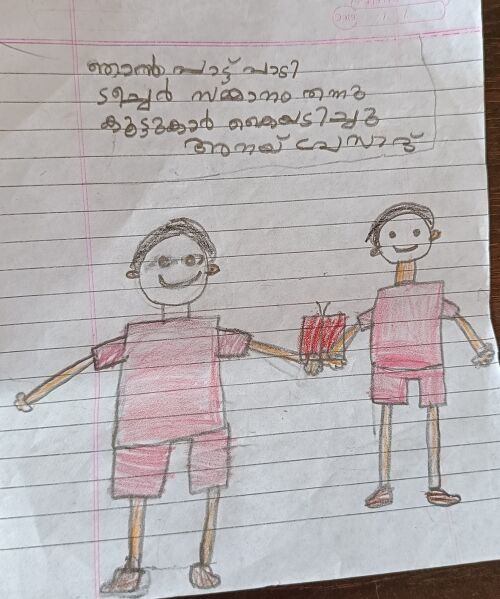 ഞാൻ പാട്ട് പാടി
ടീച്ചെർ സമ്മാനം തന്നു
കൂട്ടുകാർ കൈയടിച്ചു
അനയ് പ്രസാദ്